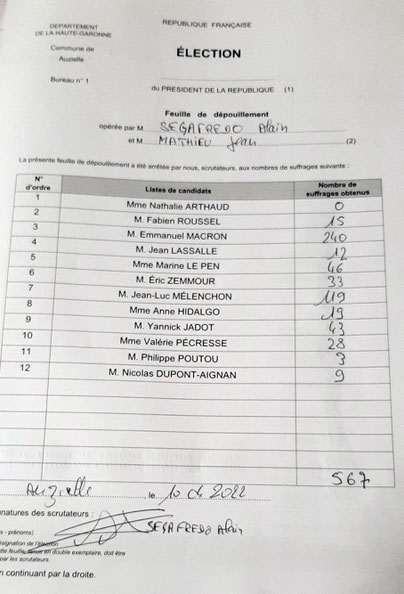 RÉPUBLIQUE FRANÇAISE
DÉPARTEMENT
DE LA HAUTE-GARONNE
Commune de
Auzielle
ÉLECTION
Bureau n° 1
du PRÉSIDENT DE LA RÉPUBLIQUE (1)
Feuille de dépouillement
opérée par M SEGAFREDO Alain
et M MATHIEU Jean (2)
La présente feuille de dépouillement a été arrêtée par nous, scrutateurs, aux nombres de suffrages suivants :
N° d'ordre Listes de candidats Nombre de suffrages obtenus
1 Mme Nathalie ARTHAUD 0
2 M. Fabien ROUSSEL 15
3 M. Emmanuel MACRON 240
4 M. Jean LASSALLE 12
5 Mme Marine LE PEN 46
6 M. Éric ZEMMOUR 33
7 M. Jean-Luc MÉLENCHON 119
8 Mme Anne HIDALGO 19
9 M. Yannick JADOT 43
10 Mme Valérie PÉCRESSE 28
11 M. Philippe POUTOU 3
12 M. Nicolas DUPONT-AIGNAN 9
567
Auzielle le 10 04 2022
natures des scrutateurs :
SEGAFREDO Alain
s - prénoms)
ésignation de l'élection
te feuille, tenue en double exemplaire, doit être
par les scrutateurs
n continuant par la droite.